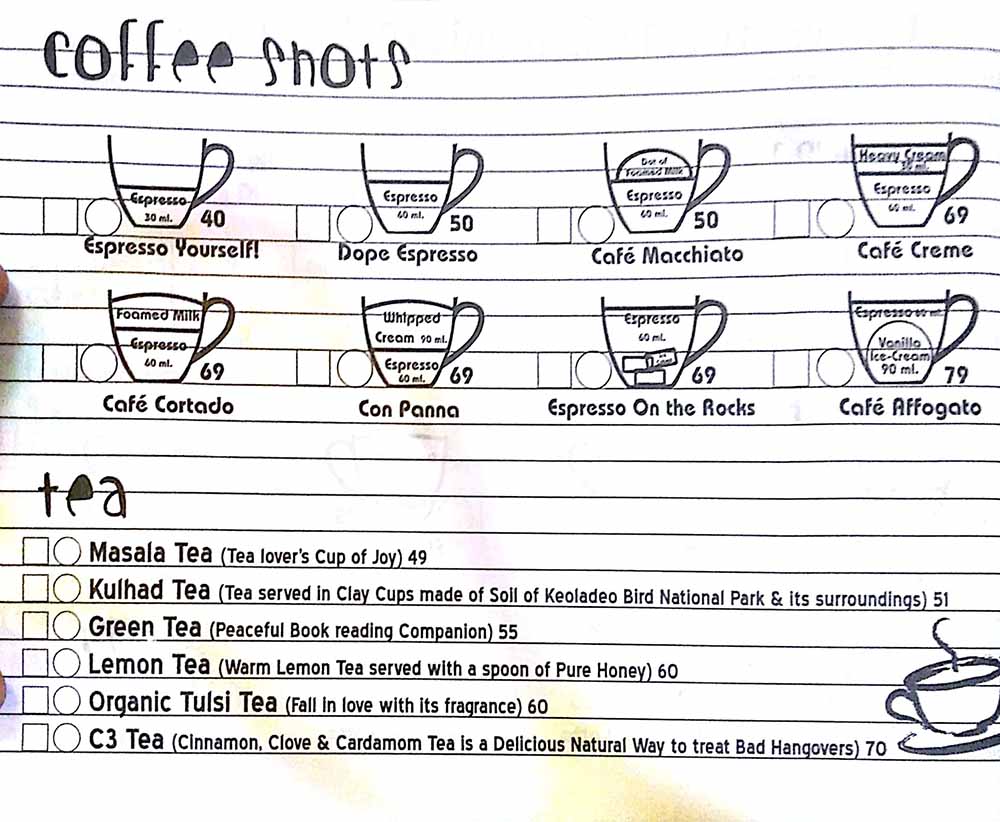 coffee shots
Espresso
30 ml.
40
Espresso Yourself!
Espresso
60 ml.
50
Dope Espresso
Dot of
Foamed Milk
Espresso
60 ml.
50
Café Macchiato
Heavy Cream
30 ml.
Espresso
60 ml.
69
Café Creme
Foamed Milk
Espresso
60 ml.
69
Café Cortado
Whipped
Cream 90 ml.
Espresso
60 ml.
69
Con Panna
Espresso
60 ml.
69
Espresso On the Rocks
Espresso 60 ml.
Vanilla
Ice-Cream
90 ml.
79
Café Affogato
tea
Masala Tea (Tea lover's Cup of Joy) 49
Kulhad Tea (Tea served in Clay Cups made of Soil of Keoladeo Bird National Park & its surroundings) 51
Green Tea (Peaceful Book reading Companion) 55
Lemon Tea (Warm Lemon Tea served with a spoon of Pure Honey) 60
Organic Tulsi Tea (Fall in love with its fragrance) 60
C3 Tea (Cinnamon, Clove & Cardamom Tea is a Delicious Natural Way to treat Bad Hangovers) 70